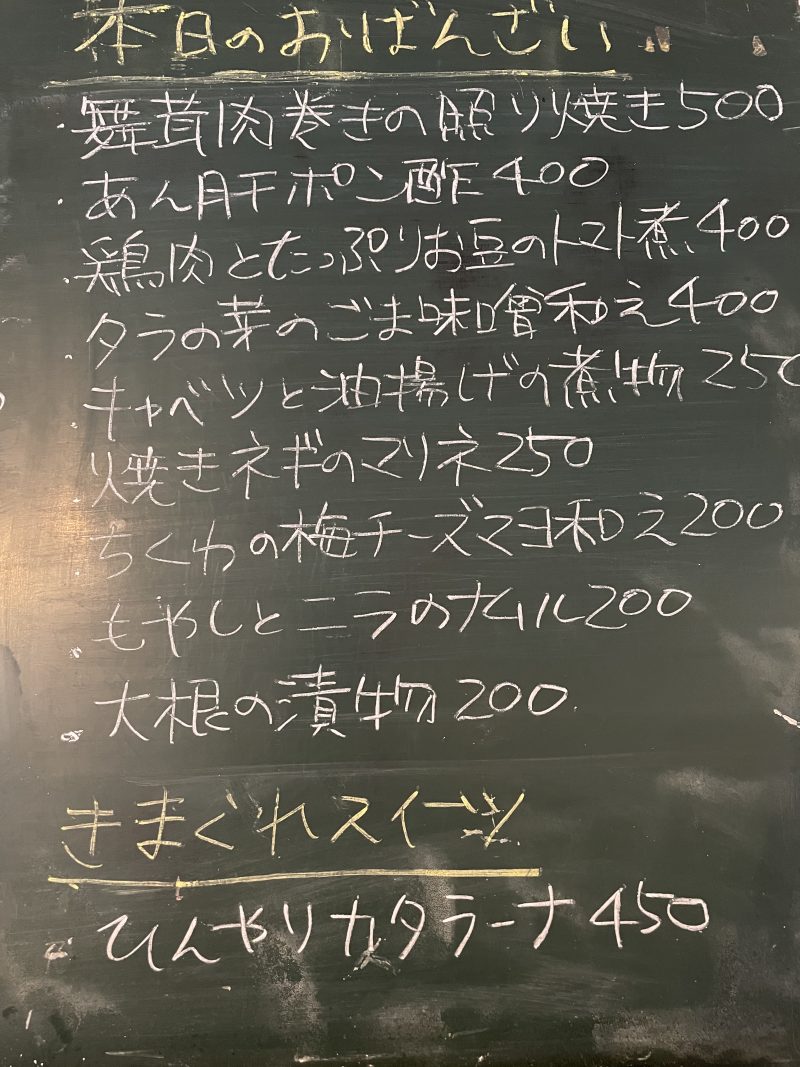 本日のおばんざい
・舞茸肉巻きの照り焼き500
・あん肝ポン酢400
・鶏肉とたっぷりお豆のトマト煮400
・タラの芽のごま味噌和え400
・キャベツと油揚げの煮物250
・焼きネギのマリネ250
・ちくわの梅チーズマヨ和え200
・もやしとニラのナムル200
・大根の漬物200
きまぐれスイーツ
・ひんやりカタラーナ450